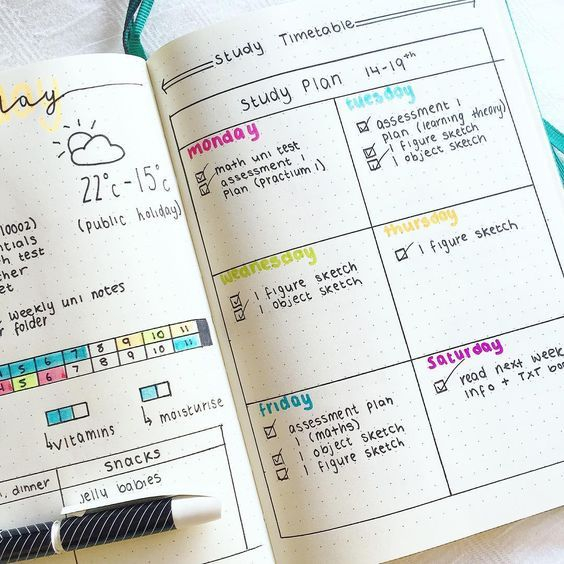 day
22°c-15°c
(public holiday)
10002)
weekly uni notes
folder
5 6 7 8 9 10 11
5 6 7 8 9 10 11
vitamins
moisturise
snacks
dinner
jelly babies
study Timetable
study Plan 14-19th
monday
math uni test
assessment 1
plan (practium 1)
tuesday
assessment 1
plan (learning theory)
1 figure sketch
1 object sketch
wednesday
1 figure sketch
1 object sketch
thursday
1 figure sketch
friday
assessment plan
1 (maths)
1 object sketch
1 figure sketch
saturday
read next week
info + TXT